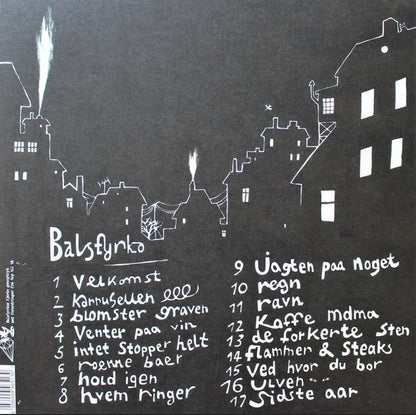 Balstyrko
1 Velkomst
2 Karrusellen
3 blomster graven
4 Venter paa vin
5 intet Stopper helt
6 roenne baer
7 hold igen
8 hvem ringer
9 Jagten paa noget
10 regn
11 ravn
12 Kaffe mdma
13 de forkerte Sten
14 flammer & Steaks
15 Ved hvor du bor
16 Ulven
17 Sidste aar